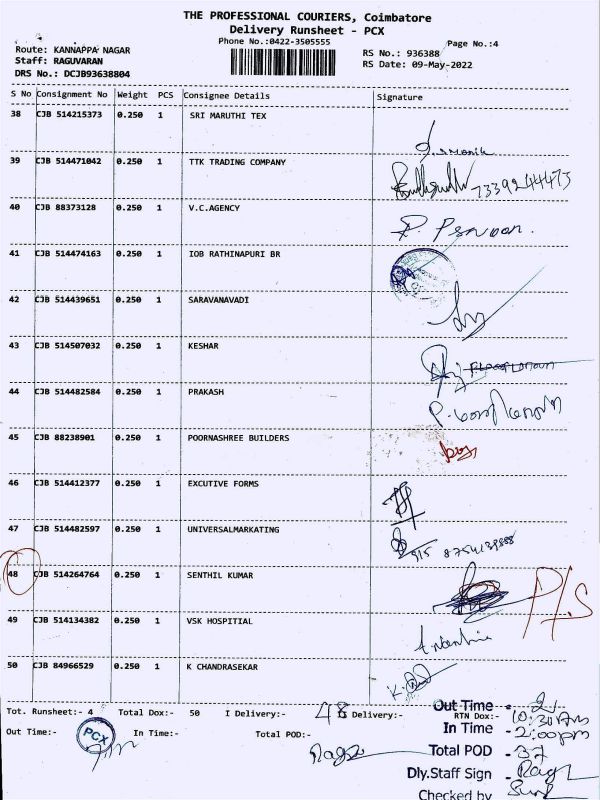 THE PROFESSIONAL COURIERS, Coimbatore
Delivery Runsheet - PCX
Phone No.:0422-3505555
Page No.:4
Route: KANNAPPA NAGAR
Staff: RAGUVARAN
DRS No.: DCJB93638804
RS No.: 936388
RS Date: 09-May-2022
S No Consignment No Weight PCS Consignee Details Signature
38 CJB 514215373 0.250 1 SRI MARUTHI TEX
39 CJB 514471042 0.250 1 TTK TRADING COMPANY 7339244473
40 CJB 88373128 0.250 1 V.C.AGENCY
41 CJB 514474163 0.250 1 IOB RATHINAPURI BR
42 CJB 514439651 0.250 1 SARAVANAVADI
43 CJB 514507032 0.250 1 KESHAR
44 CJB 514482584 0.250 1 PRAKASH
45 CJB 88238901 0.250 1 POORNASHREE BUILDERS
46 CJB 514412377 0.250 1 EXCUTIVE FORMS
47 CJB 514482597 0.250 1 UNIVERSALMARKATING
48 CJB 514264764 0.250 1 SENTHIL KUMAR P/S
49 CJB 514134382 0.250 1 VSK HOSPITIAL
50 CJB 84966529 0.250 1 K CHANDRASEKAR
Tot. Runsheet:- 4 Total Dox:- 50 I Delivery:- 48 Delivery:- RTN Dox:- 2
Out Time:- PCX In Time:- Total POD:-
Out Time - 10:30Am
In Time - 2:00pm
Total POD - 37
Dly.Staff Sign -
Checked by